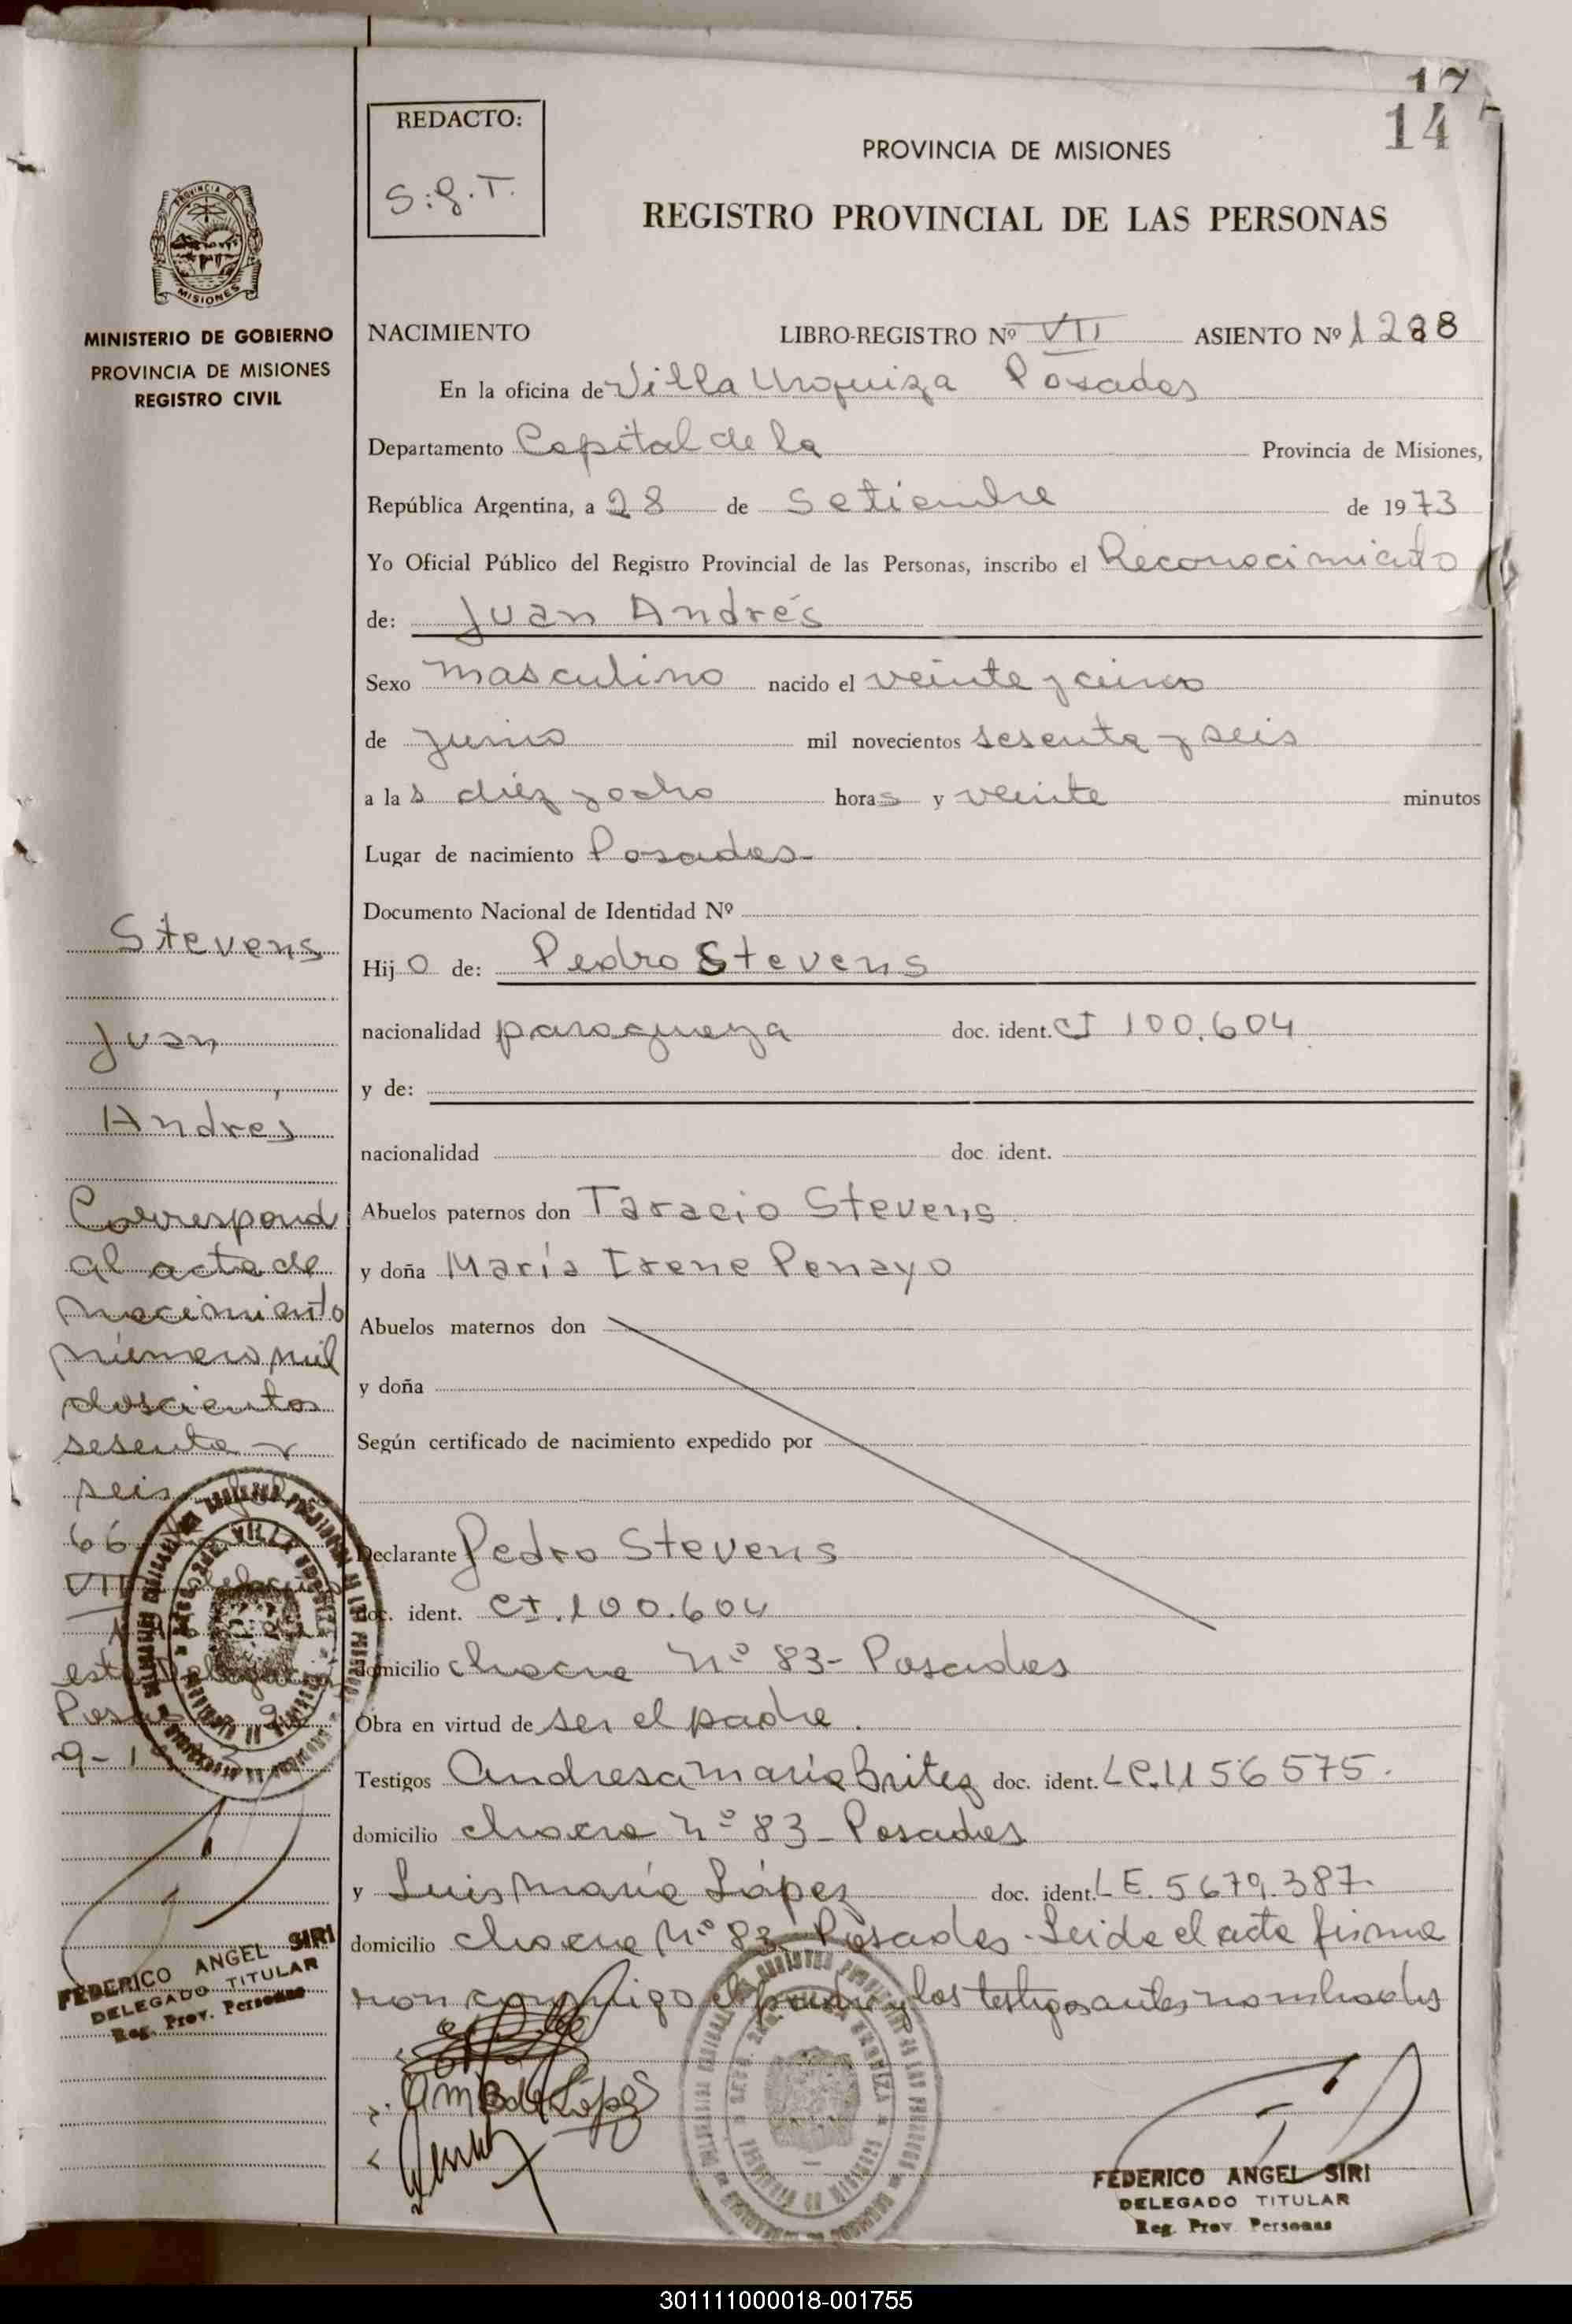 17
14
REDACTO:
S.G.T.
PROVINCIA DE MISIONES
REGISTRO PROVINCIAL DE LAS PERSONAS
PROVINCIA DE
MISIONES
MINISTERIO DE GOBIERNO
PROVINCIA DE MISIONES
REGISTRO CIVIL
NACIMIENTO LIBRO-REGISTRO Nº VII ASIENTO Nº 1288
En la oficina de Villa Urquiza Posadas
Departamento Capital de la Provincia de Misiones,
República Argentina, a 28 de Setiembre de 1973
Yo Oficial Público del Registro Provincial de las Personas, inscribo el Reconocimiento
de: Juan Andrés
Sexo masculino nacido el veinte y cinco
de junio mil novecientos sesenta y seis
a las diéz y ocho horas y veinte minutos
Lugar de nacimiento Posadas
Documento Nacional de Identidad Nº
Hijo de: Pedro Stevens
nacionalidad paraguaya doc. ident. CI 100.604
y de:
nacionalidad doc. ident.
Abuelos paternos don Taracio Stevens
y doña María Irene Penayo
Abuelos maternos don
y doña
Según certificado de nacimiento expedido por
Declarante Pedro Stevens
doc. ident. CI.100.604
domicilio chacra Nº 83- Posadas
Obra en virtud de ser el padre.
Testigos Andresa María Britez doc. ident. LC.1156575.
domicilio chacra nº 83- Posadas
y Luis María López doc. ident. LE. 5679.387.
domicilio chacra Nº 83 Posadas. Leida el acta firma
ron conmigo el padre y los testigos antes nombrados
AM B de López
FEDERICO ANGEL SIRI
DELEGADO TITULAR
Reg. Prov. Personas
Stevens
Juan
Andrés
Correspond
al acta de
nacimiento
número mil
doscientos
sesenta y
seis
66
VII
esta
Posadas
FEDERICO ANGEL SIRI
DELEGADO TITULAR
Reg. Prov. Personas
301111000018-001755